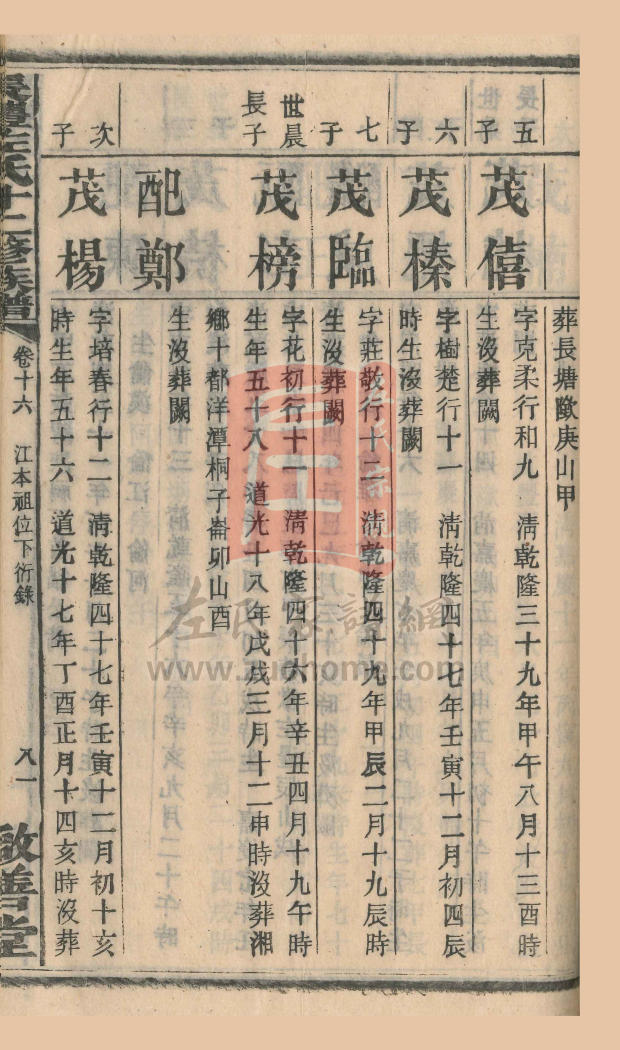 葬長塘歐庚山甲
五子
茂僖
字克柔行和九 淸乾隆三十九年甲午八月十三酉時
生沒葬闕
六子
茂榛
字樹楚行十一 淸乾隆四十七年壬寅十二月初四辰
時生沒葬闕
七子
茂臨
字莊敬行十二 淸乾隆四十九年甲辰二月十九辰時
生沒葬闕
世晨長子
茂榜
字花初行十一 淸乾隆四十六年辛丑四月十九午時
生年五十八 道光十八年戊戌三月十二申時沒葬湘
鄉十都洋潭桐子崙卯山酉
配鄭
生沒葬闕
次子
茂楊
字培春行十二 淸乾隆四十七年壬寅十二月初十亥
時生年五十六 道光十七年丁酉正月十四亥時沒葬
氏十二修族譜
卷十六 江本祖位下衍錄
八一
啟善堂
左氏家譜網
www.zuohome.com